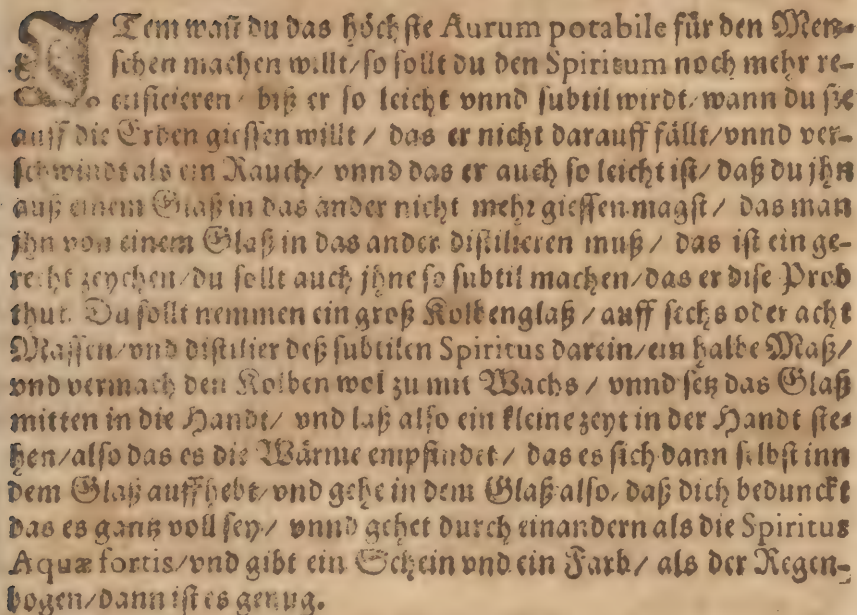 ITem wañ du das höchste Aurum potabile für den Men-
schen machen willt/ so sollt du den Spiritum noch mehr re-
ctificieren / biß er so leicht vnnd subtil wirdt/ wann du sie
auff die Erden giessen willt / das er nicht darauff fällt/ vnnd ver-
schwindt als ein Rauch/ vnnd das er auch so leicht ist/ daß du jhn
auß einem Glaß in das ander nicht mehr giessen magst / das man
jhn von einem Glaß in das ander distilieren muß / das ist ein ge-
recht zeychen/ du sollt auch jhne so subtil machen/ das er dise Prob
thut. Du sollt nemmen ein groß Kolbenglaß / auff sechs oder acht
Massen/ vnd distilier deß subtilen Spiritus darein/ ein halbe Maß/
vnd vermach den Kolben wol zu mit Wachs / vnnd setz das Glaß
mitten in die Handt/ vnd laß also ein kleine zeyt in der Handt ste-
hen/ also das es die Wärme empfindet / das es sich dann selbst inn
dem Glaß auffhebt/ vnd gehe in dem Glaß also, daß dich bedunckt
das es gantz voll sey/ vnnd gehet durch einandern als die Spiritus
Aquæ fortis/ vnd gibt ein Schein vnd ein Farb/ als der Regen-
bogen/ dann ist es genug.